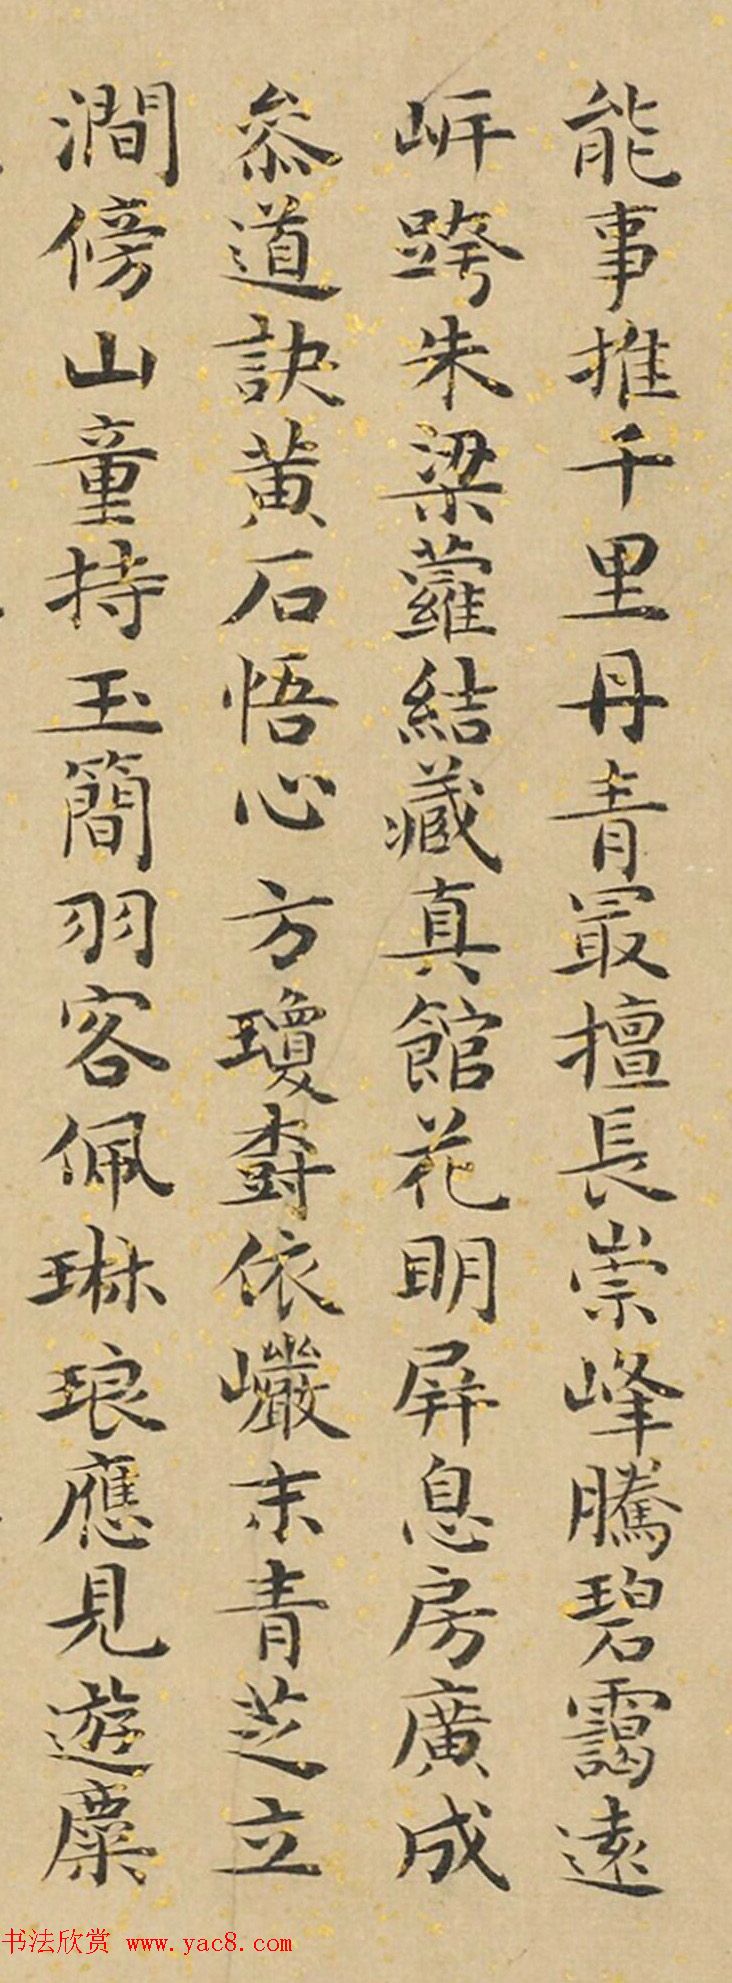 能事推千里丹青最擅長崇峰騰碧靄遠
岍跨朱梁蘿結藏真館花明屏息房廣成
叅道訣黃石悟心方瓊樹依巗末青芝立
澗傍山童持玉簡羽客佩琳琅應見遊麋
书法欣赏 www.yac8.com